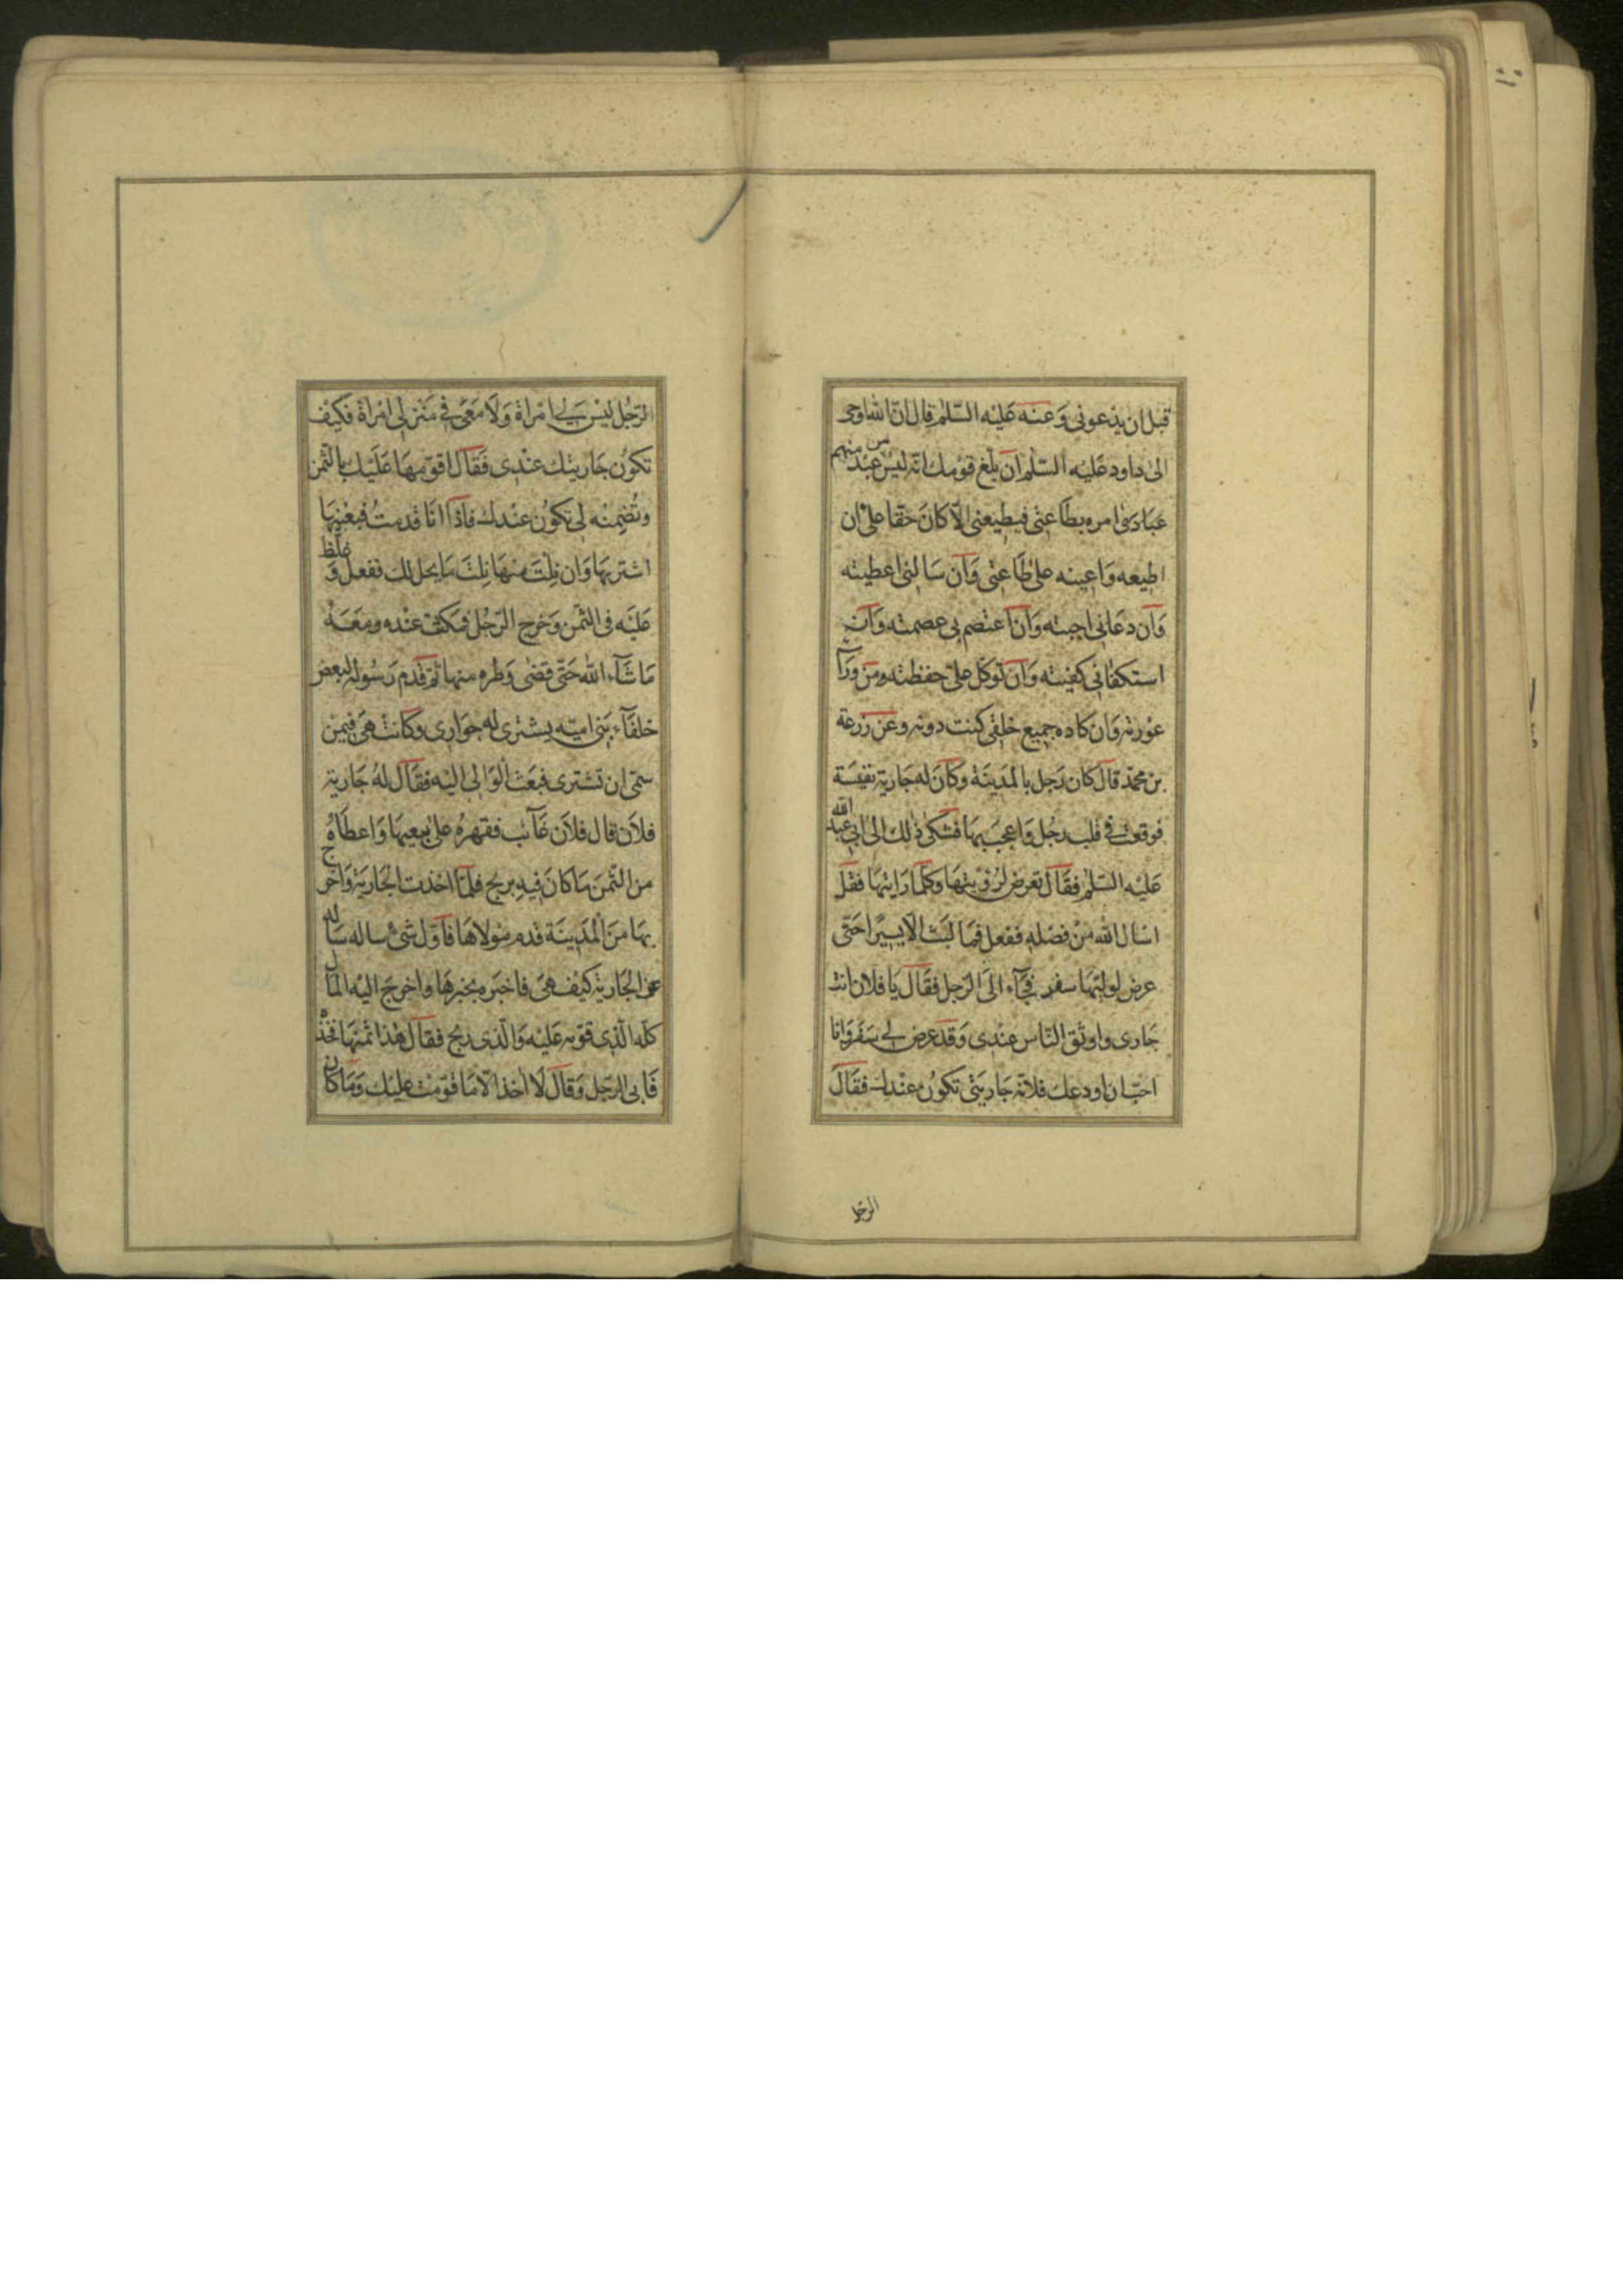 قبل ان يدعونى وَعنه عَليْه السّلم قال انّ الله اوحى
الى داود عَليْه السّلم ان بلّغ قومك انّه ليس من عبْد منهم
عبَادى امره بطَاعتى فيطيعنى الّا كانَ حقّا علىّ ان
اطيعه وَاعينه على طَاعتى وَان سَالنى اعطيته
وَان دعَانى اجبته وَان اعتصم بى عصمته وَان
استكفانى كفيته وَان توكّل علىّ حفظته من ورَآء
عوْرته وَان كاده جميع خلقى كنت دونه وعن زرعة
بن محمّد قال كان رَجل بالمَدينَة وكانَ له جَارية نفيسَة
فوقعت فى قلب رجُل وَاعجب بهَا فشكى ذلك الى ابى عبد الله
عَليْه السّلم فقَال تعرض لرؤيتهَا وكلّما رَايتهَا فقل
اسَال الله منْ فضْله ففعل فمَا لبَث الّا يسيرًا حَتّى
عرض لوليّهَا سفر فجَآء الَى الرّجل فقَال يَا فلان انت
جَارى واوثق النّاس عنْدى وَقد عرض لى سَفر وَانا
احبّ ان اودعك فلانة جَاريتى تكوُن عنْدك فقَال
الرّجل
الرّجُل ليْس لى امْراة وَلَا مَعى فى مَنْزلى امْراة فكيْف
تكوُن جَاريتك عنْدى فَقَال اقوّمهَا عَلَيْك بالثّمن
وتُضمنه لى تكوُن عنْدك فاذا انَا قدمتُ فبعْنيهَا
اشتريهَا وَان نلتَ منهَا نلتَ مَا يحل لك ففعل وَغلّظ
عَليَه فى الثمَن وَخرج الرّجُل فمكثت عنْده ومَعَهُ
مَا شَآء الله حَتّى قضى وَطره منها ثمّ قدم رَسُول لبعض
خلفَآء بَنى اميّه يشترى له جوَارى وكَانت هىَ فيمن
سمّى ان تشترى فبَعَث الوَالى اليْه فقَال لهُ جَارية
فلَان قال فلَان غَآئب فقهرهُ على بيعهَا وَاعطَاهُ
من الثّمنَ مَا كانَ فيهِ ربح فلمّا اخذت الجَارية وَاخرج
بهَا منَ المَدينَة قدم مَوْلاهَا فاوّل شَىْء ساله سَاله
عن الجَارية كيْف هىَ فاخبَره بخبرهَا واخرجَ اليْه المَال
كلّه الّذى قوّمه عَليْه وَالّذى ربح فقَال هٰذا ثمنهَا فخذه
فَابى الرّجل وَقَال لَا اٰخذ الّا مَا قوّمْت عليْك وَمَا كَان